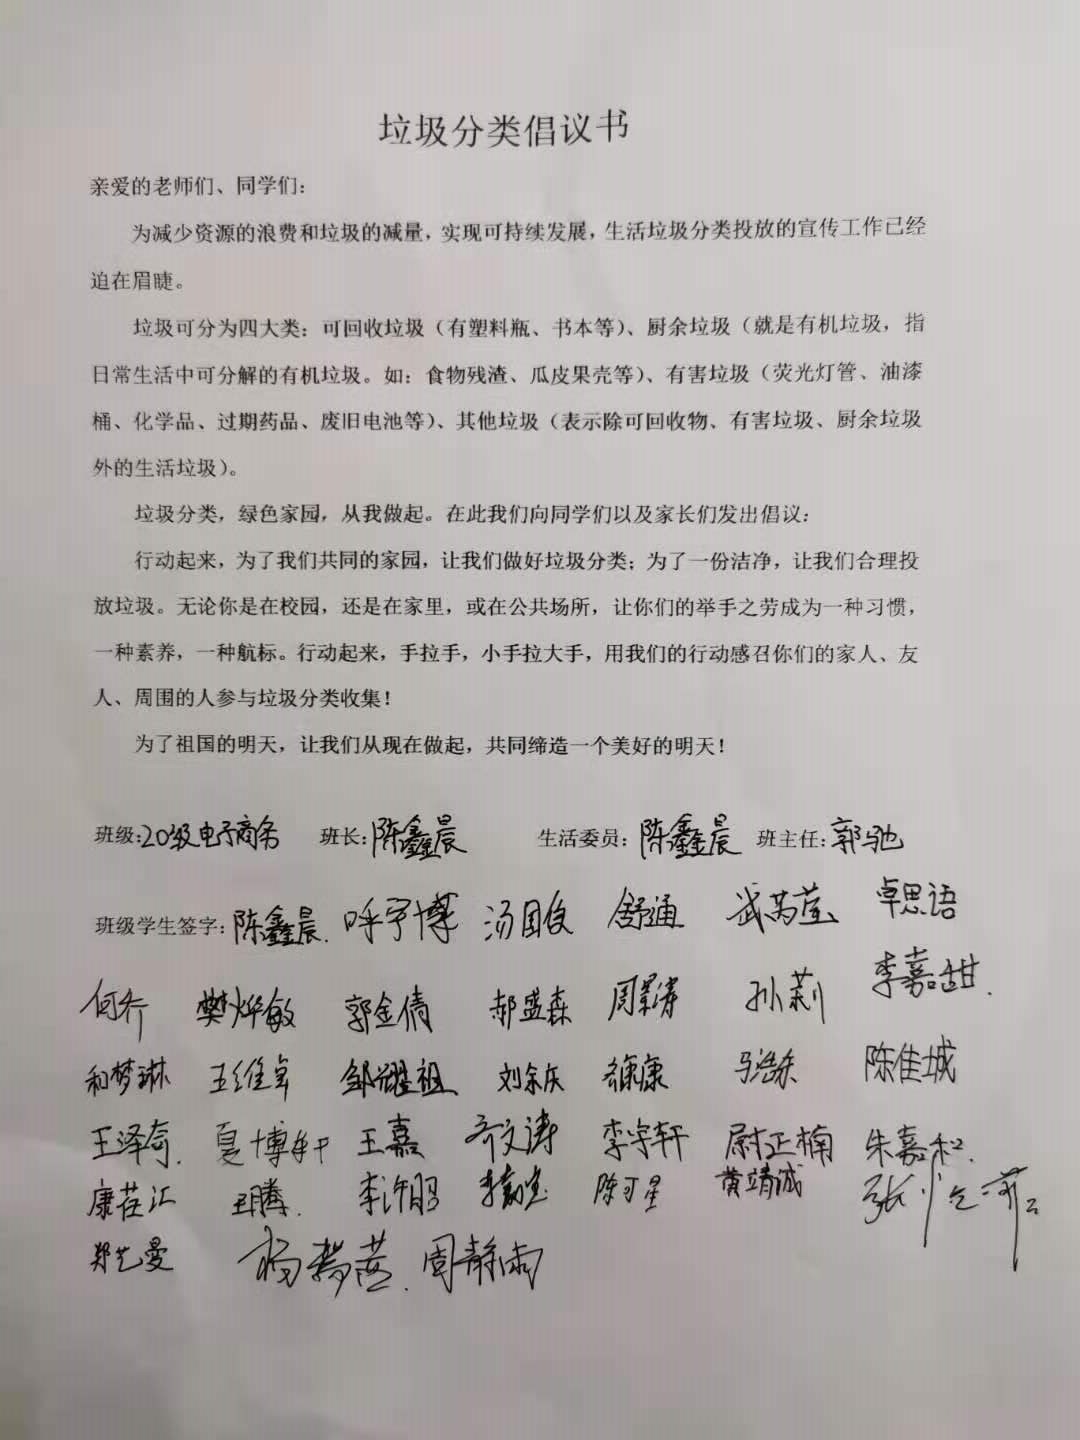 垃圾分类倡议书
亲爱的老师们、同学们：
为减少资源的浪费和垃圾的减量，实现可持续发展，生活垃圾分类投放的宣传工作已经
迫在眉睫。
垃圾可分为四大类：可回收垃圾（有塑料瓶、书本等）、厨余垃圾（就是有机垃圾，指
日常生活中可分解的有机垃圾。如：食物残渣、瓜皮果壳等）、有害垃圾（荧光灯管、油漆
桶、化学品、过期药品、废旧电池等）、其他垃圾（表示除可回收物、有害垃圾、厨余垃圾
外的生活垃圾）。
垃圾分类，绿色家园，从我做起。在此我们向同学们以及家长们发出倡议：
行动起来，为了我们共同的家园，让我们做好垃圾分类；为了一份洁净，让我们合理投
放垃圾。无论你是在校园，还是在家里，或在公共场所，让你们的举手之劳成为一种习惯，
一种素养，一种航标。行动起来，手拉手，小手拉大手，用我们的行动感召你们的家人、友
人、周围的人参与垃圾分类收集！
为了祖国的明天，让我们从现在做起，共同缔造一个美好的明天！
班级：20级电子商务 班长：陈鑫晨 生活委员：陈鑫晨 班主任：郭驰
班级学生签字：陈鑫晨. 呼宇博 汤国俊 舒通 武芮莹 卓思语
何乔 樊烨敏 郭金倩 郝盛森 孙莉 李嘉甜.
和梦琳 王维卓 邹耀祖 刘余庆 徐康 马浩东 陈佳城
王泽奇. 夏博轩 王嘉 齐文涛 李宇轩 尉正楠 朱嘉和.
康荏汇 王腾. 李许昭 陈可星 黄靖诚
郑艺曼 周静雨